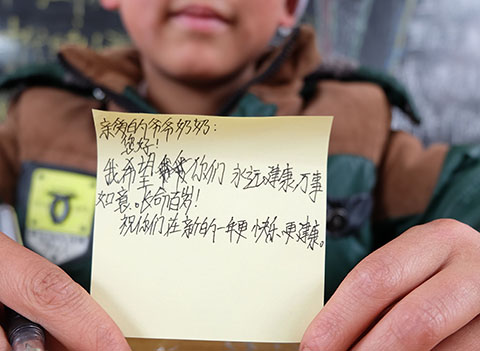 亲爱的爷爷奶奶:
您好!
我希望你们永远健康,万事
如意。长命百岁!
祝你们在新的一年更快乐、更健康。